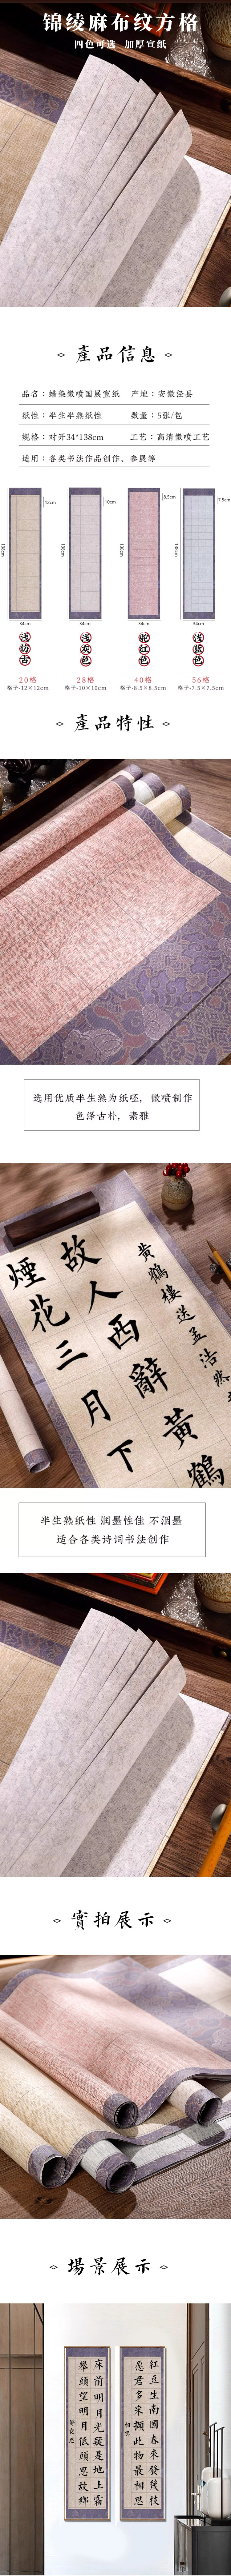 锦绫麻布纹方格
四色可选 加厚宣纸
產品信息
品名：蜡染微喷国展宣纸 产地：安徽泾县
纸性：半生半熟纸性 数量：5张/包
规格：对开34*138cm 工艺：高清微喷工艺
适用：各类书法作品创作、参展等
12cm
138cm
34cm
10cm
138cm
34cm
8.5cm
138cm
34cm
7.5cm
138cm
34cm
浅仿古
浅灰色
浅蓝色
20格
格子-12×12cm
28格
格子-10×10cm
40格
格子-8.5×8.5cm
56格
格子-7.5×7.5cm
產品特性
选用优质半生熟为纸呸，微喷制作
色泽古朴，素雅
黄鶴樓送孟浩然
故人西辭黄鶴
煙花三月下
半生熟纸性 润墨性佳 不洇墨
适合各类诗词书法创作
實拍展示
場景展示
床前明月光疑是地上霜
舉頭望明月低頭思故鄉
靜夜思
紅豆生南國春來發幾枝
愿君多采撷此物最相思
相思